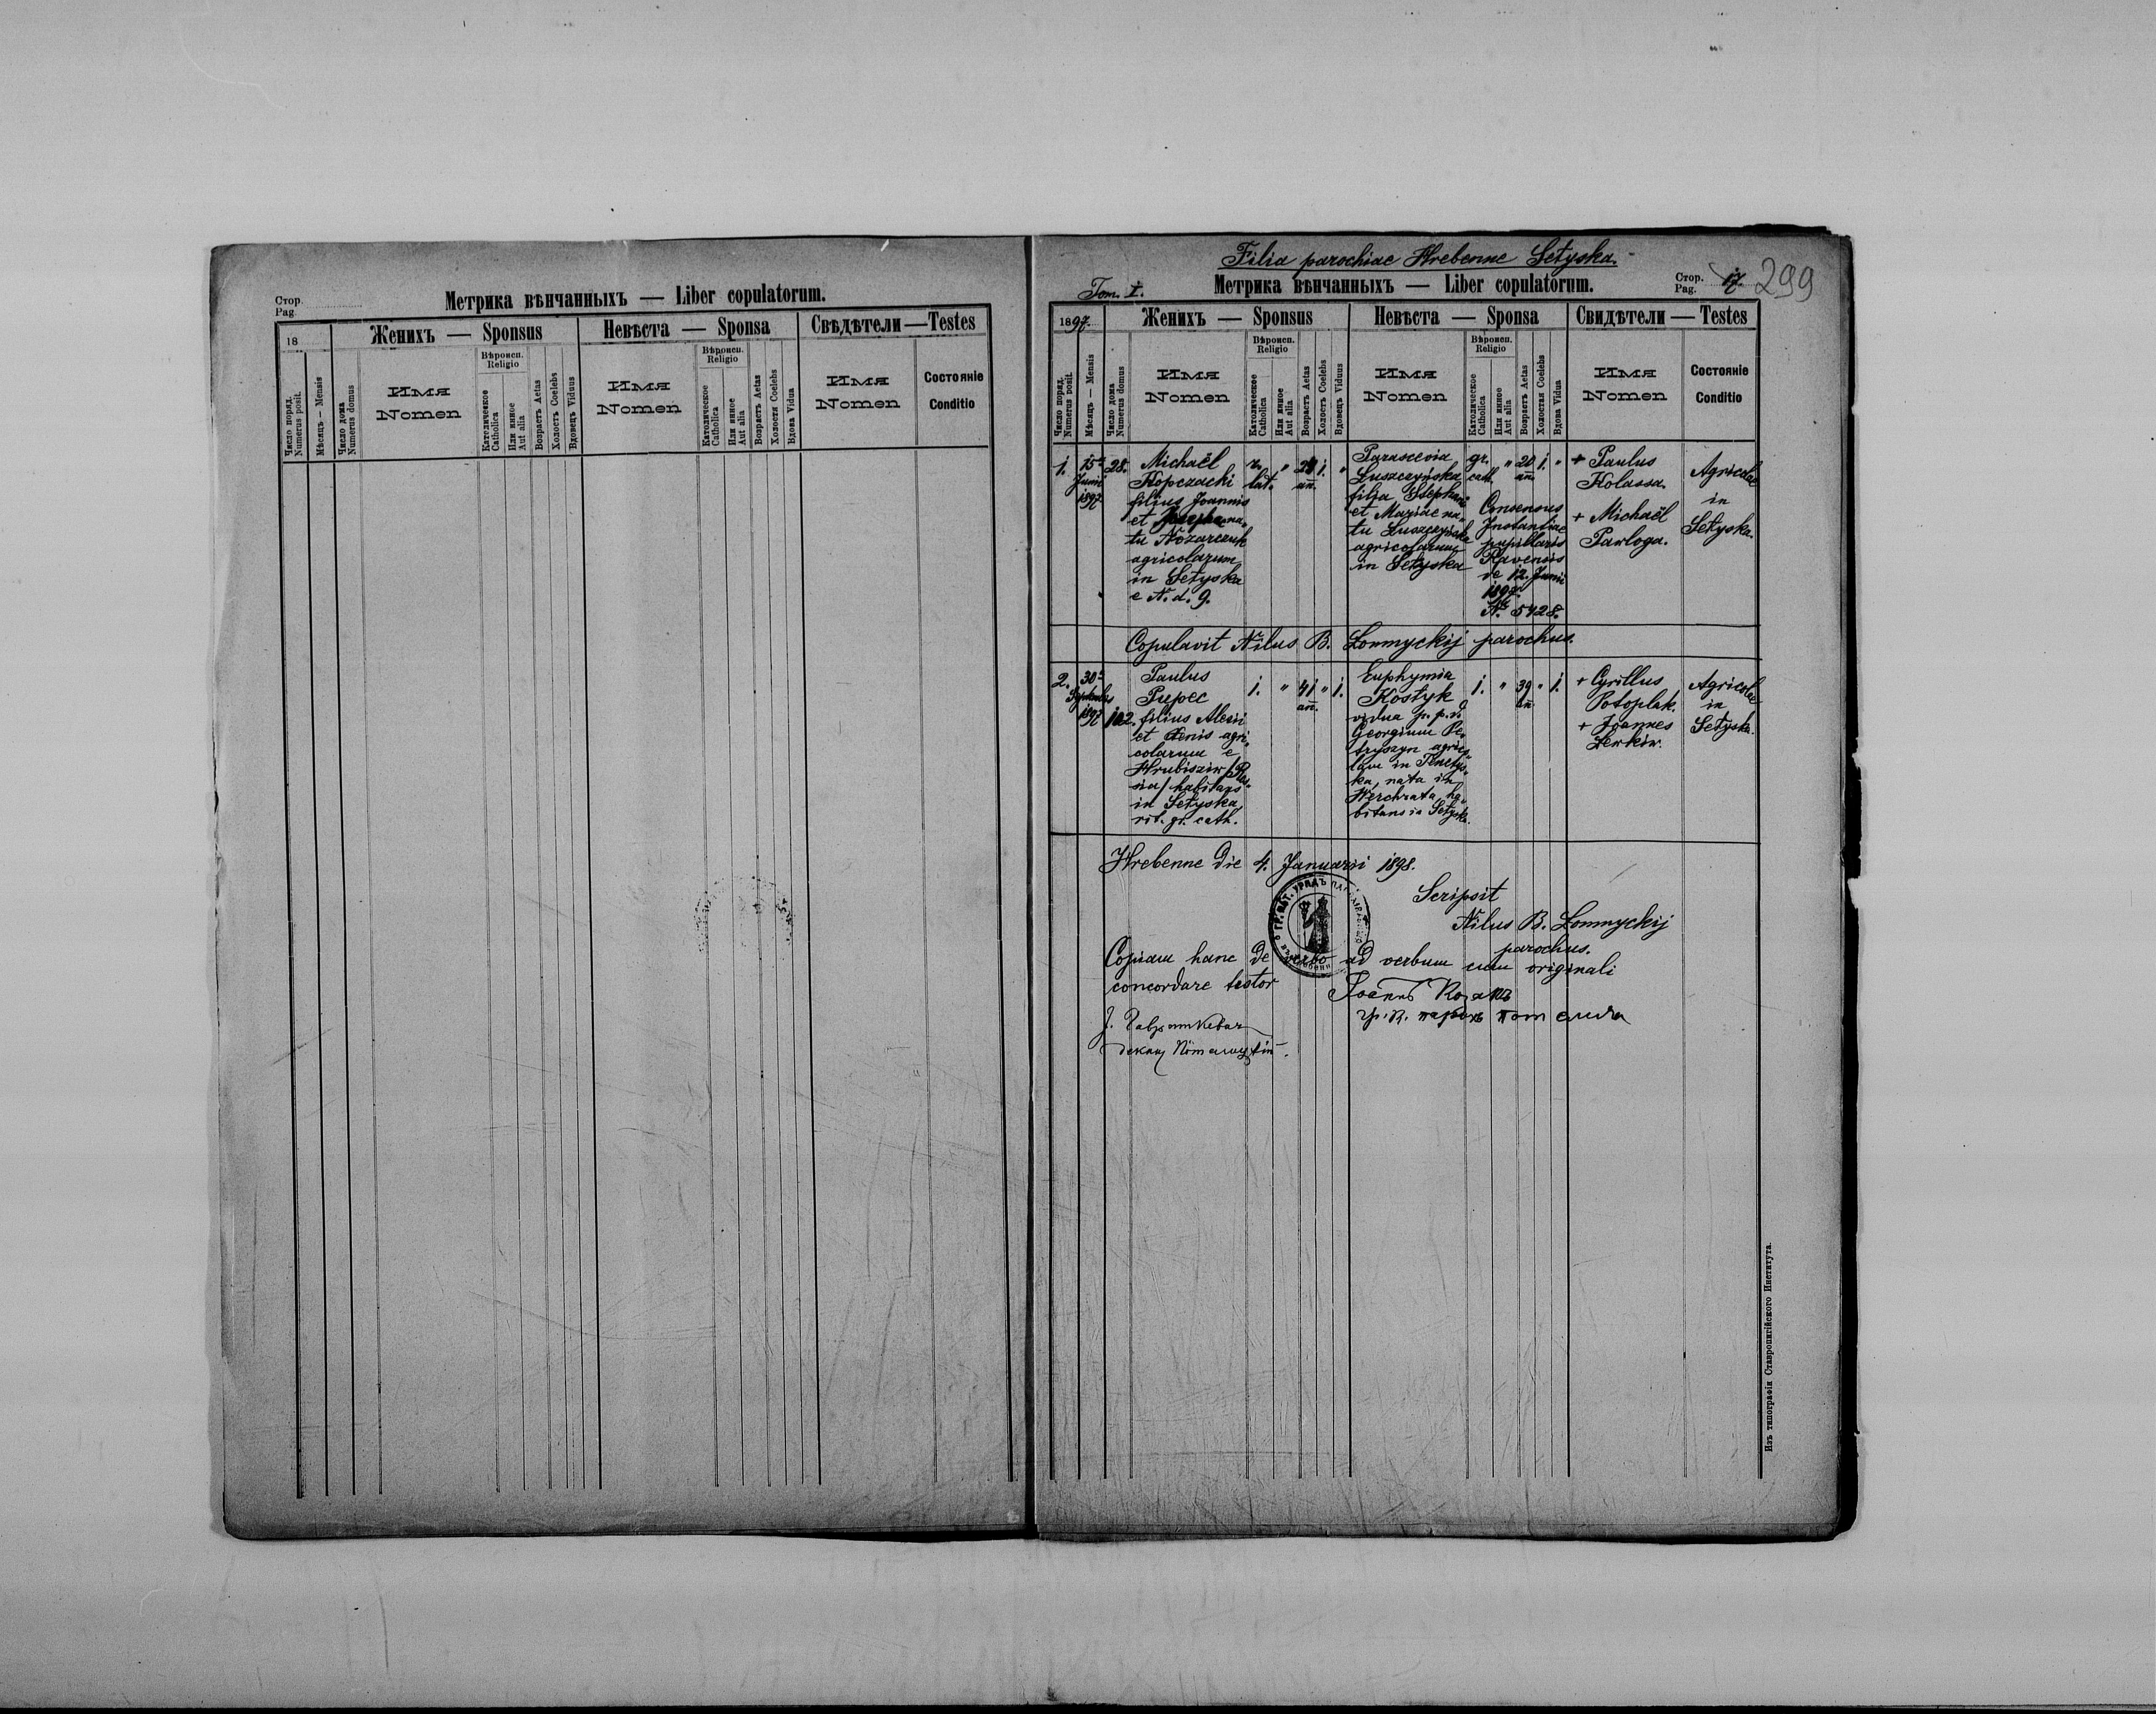 Стор.
Pag.
Метрика вѣнчанныхъ — Liber copulatorum.
18
Женихъ — Sponsus
Невѣста — Sponsa
Свѣдѣтели — Testes
Число поряд.
Numerus posit.
Мѣсяцъ — Mensis
Число дома
Numerus domus
Имя
Nomen
Вѣроисп.
Religio
Католическое
Catholica
Или инное
Aut alia
Возрастъ Aetas
Холостъ Coelebs
Вдовецъ Viduus
Имя
Nomen
Вѣроисп.
Religio
Католическое
Catholica
Или инное
Aut alia
Возрастъ Aetas
Холостая Coelebs
Вдова Vidua
Имя
Nomen
Состояніе
Conditio
Filia parochiae Hrebenne Setyska.
Tom. I.
Метрика вѣнчанныхъ — Liber copulatorum.
Стор.
Pag.
17
299
1897.
Женихъ — Sponsus
Невѣста — Sponsa
Свидѣтели — Testes
Число поряд.
Numerus posit.
Мѣсяцъ — Mensis
Число дома
Numerus domus
Имя
Nomen
Вѣроисп.
Religio
Католическое
Catholica
Или инное
Aut alia
Возрастъ Aetas
Холостъ Coelebs
Вдовецъ Viduus
Имя
Nomen
Вѣроисп.
Religio
Католическое
Catholica
Или инное
Aut alia
Возрастъ Aetas
Холостая Coelebs
Вдова Vidua
Имя
Nomen
Состояніе
Conditio
1.
15ª
Junii
1897
28.
Michaël
Kopczachi
filius Joannis
et na-
tu Nozarczuk
agricolarum
in Setyska
e N. d. 9.
r.
lat.
"
an.
1.
"
Parascevia
Luszczyńska
filia Stephani
et Mariae na-
tu
agricolarum
in Setyska
gr.
cath.
"
20
an.
1.
"
Consensus
Instantiae
pupillaris
Ravensis
de 12. Junii
1897.
№ 5428.
+ Paulus
Kolassa.
+ Michaël
Pawloga.
Agricolae
in
Setyska.
Copulavit Nilus B. Lonmyckij parochus.
2.
30ª
Septembris
1897
102.
Paulus
Pupec
filius Alexii
et agri-
colarum e
Hrubisziw /Rus-
sia/ habitans
in Setyska,
rit. gr. cath.
1.
"
41
an.
"
1.
Euphymia
Kostyk
vidua p. p. d.
Georgium Pe-
tryszyn agrico-
lam in
ka, nata in
Werchrata, ha-
bitans in Setyska.
1.
"
39
an.
"
1.
+ Cyrillus
Potoplak.
+ Joannes
Lewkiw.
Agricolae
in
Setyska.
Hrebenne die 4. Januarii 1898.
Scripsit
Nilus B. Lonmyckij
parochus.
Copiam hanc de verbo ad verbum cum originali
concordare testor
Іоаннъ Козакъ
гр. к. парохъ
декан
Изъ типографіи Ставропигійского Института.